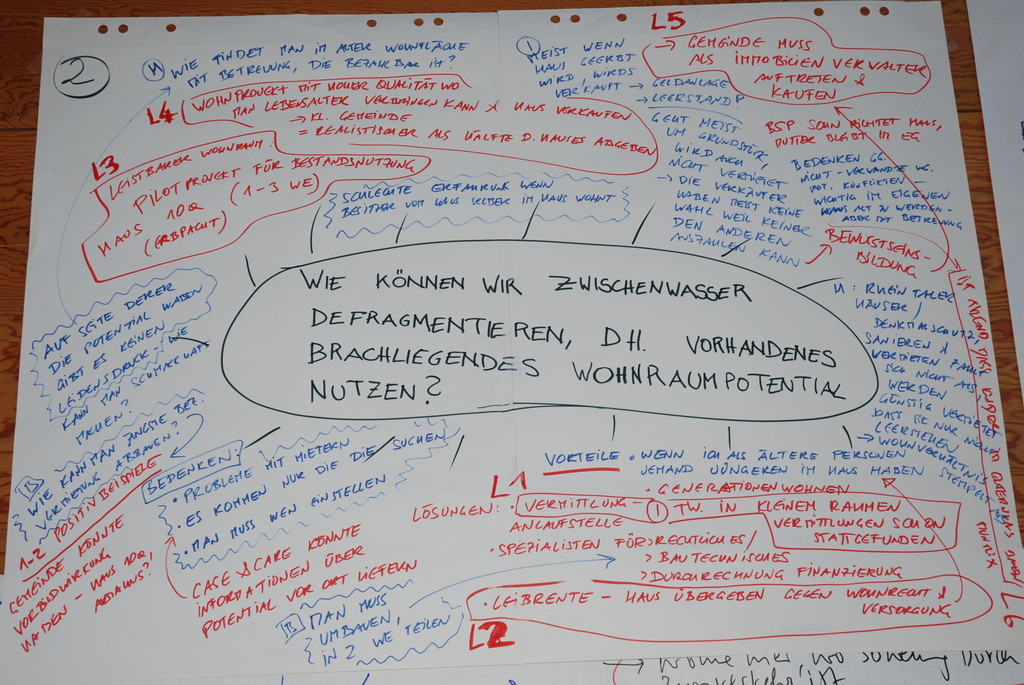 2
WIE FINDET MAN IM ALTER WOHNFLÄCHE
MIT BETREUUNG, DIE BEZAHLBAR IST?
L4
WOHNPROJEKT MIT HOHER QUALITÄT WO
MAN LEBENSALTER VERBRINGEN KANN & HAUS VERKAUFEN
→ KL. GEMEINDE
= REALISTISCHER ALS HÄLFTE D. HAUSES ABGEBEN
L3
LEISTBARER WOHNRAUM:
PILOTPROJEKT FÜR BESTANDSNUTZUNG
HAUS 10Q (1-3 WE)
(ERBPACHT)
SCHLECHTE ERFAHRUNG WENN
BESITZER VOM HAUS SELBER IM HAUS WOHNT
MEIST WENN
HAUS GEERBT
WIRD, WIRDS
VERKAUFT → GELDANLAGE
→ LEERSTAND!
GEHT MEIST
UM GRUNDSTÜCK,
WIRD AUCH
NICHT VERMIETET
→ DIE VERKÄUFER
HABEN MEIST KEINE
WAHL WEIL KEINER
DEN ANDEREN
AUSZAHLEN KANN
L5
→ GEMEINDE MUSS
ALS IMMOBILIENVERWALTER
AUFTRETEN &
KAUFEN
BSP SOHN RICHTET HAUS,
MUTTER BLEIBT IM EG
BEDENKEN GG.
NICHT-VERWANDTE WG.
POT. KONFLIKTEN
WICHTIG IM EIGENEN
HAUS ALT ZU WERDEN -
ABER MIT BETREUUNG
BEWUSTSEINS-
BILDUNG
WIE KÖNNEN WIR ZWISCHENWASSER
DEFRAGMENTIEREN, DH. VORHANDENES
BRACHLIEGENDES WOHNRAUMPOTENTIAL
NUTZEN?
H: RHEINTALER
HÄUSER /
DENKMALSCHUTZ,
SANIEREN &
VERMIETEN ZAHLT
SICH NICHT AUS,
WERDEN
GÜNSTIG VERMIETET
DASS SIE NUR NICHT
LEERSTEHEN
→ WOHNVERHÄLTNIS
STEMPELT
AUF SEITE DERER
DIE POTENTIAL HABEN
GIBT ES KEINEN
LEIDENSDRUCK / WIE
KANN MAN SCHMACKHAFT
MACHEN?
B
WIE KANN MAN ÄNGSTE BEZ.
VERMIETUNG ABBAUEN?
1-2 POSITIVBEISPIELE
GEMEINDE KÖNNTE
VORBILDWIRKUNG
HABEN - HAUS 10Q,
BEDENKEN?
• PROBLEME MIT MIETERN
• ES KOMMEN NUR DIE DIE SUCHEN
• MAN MUSS WEN EINSTELLEN
CASE & CARE KÖNNTE
INFORTATIONEN ÜBER
POTENTIAL VOR ORT LIEFERN
B MAN MUSS
UMBAUEN,
IN 2 WE TEILEN
VORTEILE • WENN ICH ALS ÄLTERE PERSONEN
JEMAND JÜNGEREN IM HAUS HABEN
• GENERATIONENWOHNEN
L1
LÖSUNGEN: • VERMITTLUNG-
ANLAUFSTELLE
TW. IN KLEINEM RAHMEN
VERMITTLUNGEN SCHON
STATTGEFUNDEN
• SPEZIALISTEN FÜR: RECHTLICHES /
> BAUTECHNISCHES
> DURCHRECHNUNG FINANZIERUNG
L2
• LEIBRENTE - HAUS ÜBERGEBEN GEGEN WOHNRECHT &
VERSORGUNG
L6